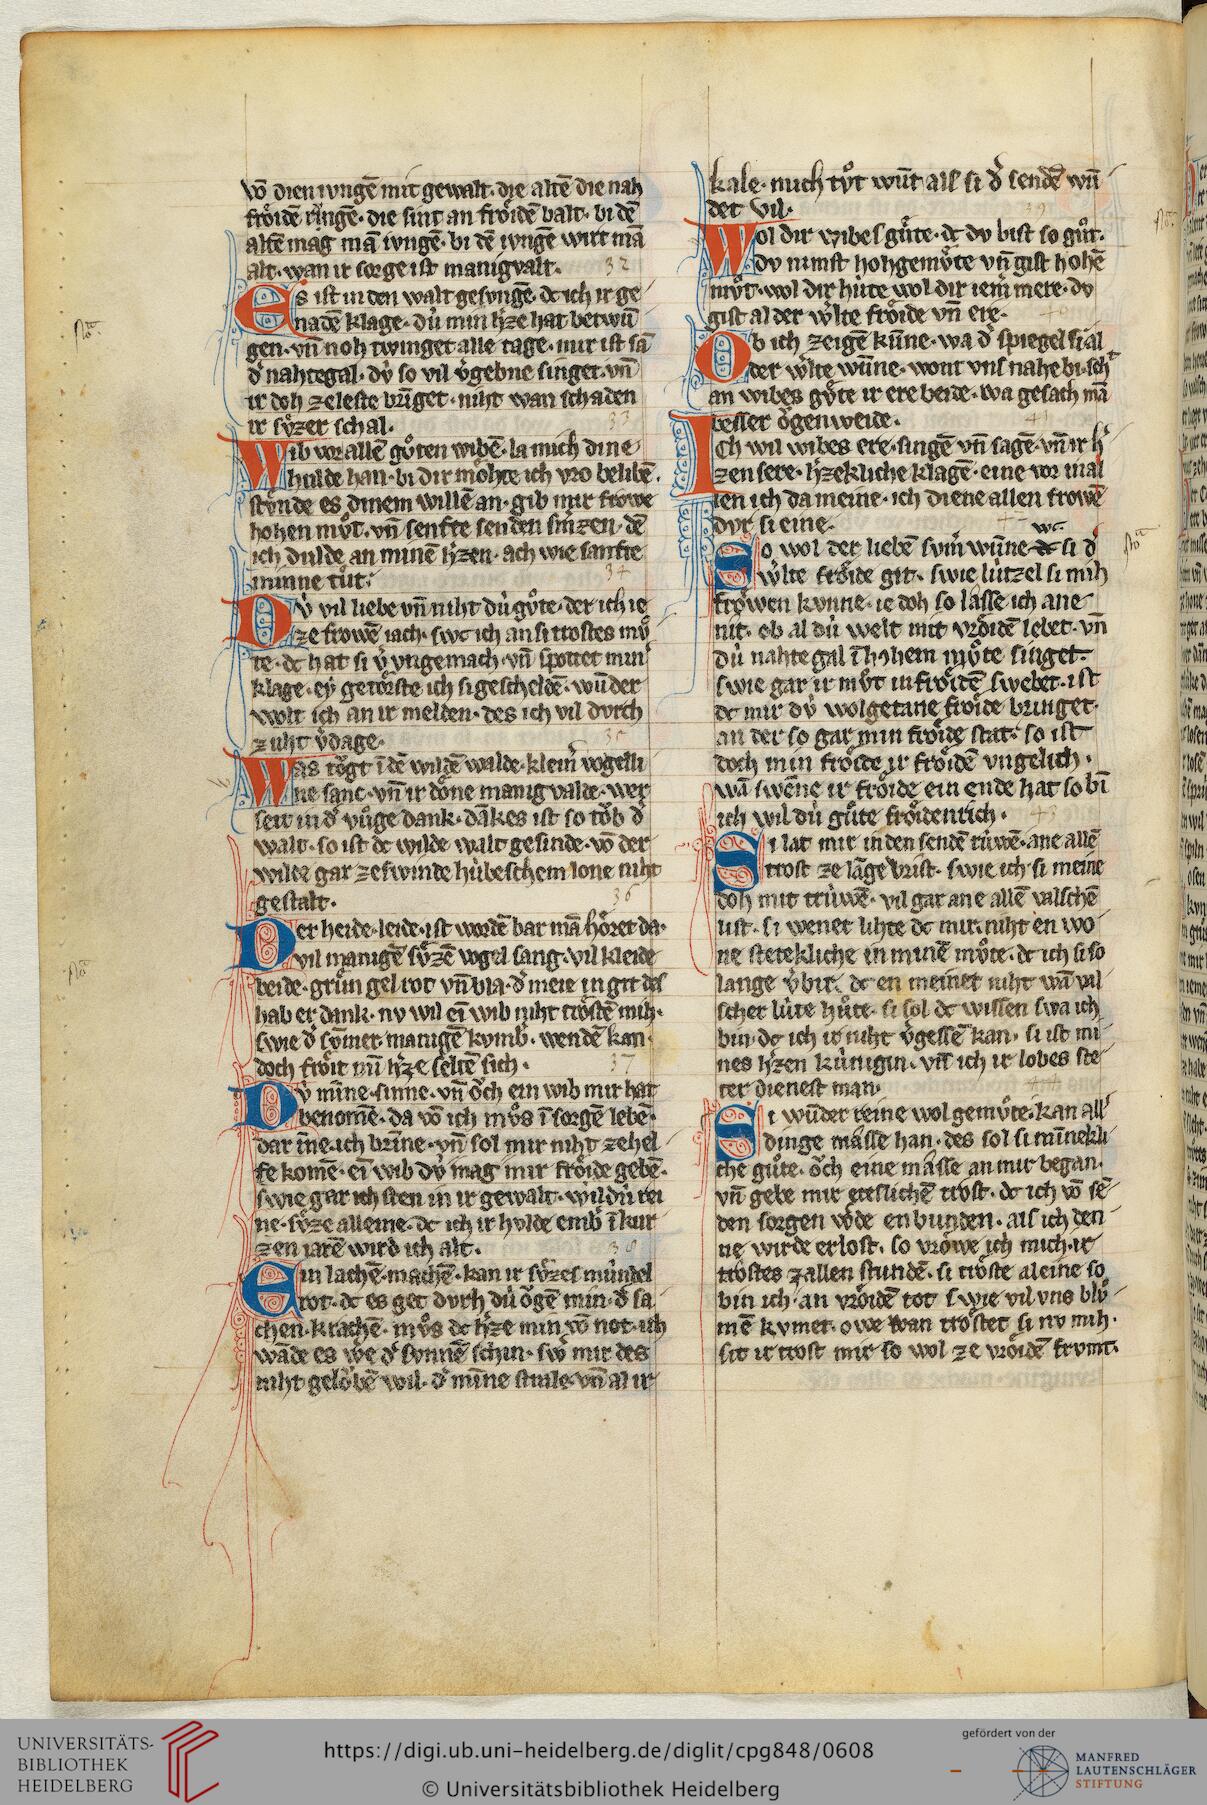 vō dien iungē mit gewalt · die altē die nah
frǒide ringe · die sint an frǒidē balt · bi dē
altē mag mā iungē · bi dē iungē wirt mā
alt · wan ir sorge ist manigvalt . 32
Es ist in den walt gesvngē · dc ich ir ge
nadē klage · dú min h'ze hat betwū
gen · vn̄ noh twinget alle tage · mir ist sā
d' nahtegal · dv́ so vil v'gebne singet · vn̄
ir doh ze leste bringet · niht wan schaden
ir sv̊zer schal . 33
Wib vor allē gv̊ten wibē · la mich dine
hulde han · bi dir mohte ich vro belibē .
stv̊nde es dinem willē an · gib mir frowe
hohen mv̊t · vn̄ senfte senden smzen · dē
ich dulde an minē h'zen · ach wie sanfte
minne tůt . 34
Dv́ vil liebe vn̄ niht dú gv̊te · der ich ie
ze frowē iach · swc ich an si trostes mv̊
te · dc hat si v́r vngemach · vn̄ spottet min'
klage · ey getorste ich si gescheldē · wūder
wolt ich an ir melden · des ich vil dvrch
zuht v'dage · 35
Was tǒgt ī dē wildē walde · kleinˢ vogelli
ne sanc · vn̄ ir dǒne manig valde · wer
seit in d' vůge dank · dākes ist so tǒb d'
walt · so ist dc wilde walt gesinde · vō der
wilde gar ze swinde húbeschem lone niht
gestalt . 36
Der heide · leide · ist wordē bar mā hǒret da ·
vil manigē sv̊zē vogel sang · vil kleide
beide · grůn gel rot vn̄ bla · d' meie in git des
hab er dank · nv wil eī wib niht trǒstē mih ·
swie d' svm̄er manigē kvmb' · wendē kan ·
doch frǒit min h'ze seltē sich . 37
Dv́ mīne · sinne · vn̄ ǒch ein wib mir hat
benomē · da vō ich mv̊s ī sorgē lebē ·
dar īne · ich brīne · vn̄ sol mir niht ze hel
fe komē · eī wib dv́ mag mir frǒide gebē ·
swie gar ich sten in ir gewalt · wil dú rei
ne · sv̊ze alleine · dc ich ir hvlde emb' ī kur
zen iarē wird ich alt . 38
Ein lachē · machē · kan ir sv̊zes múndel
rot · dc es get dvrh dú ǒgē min · d' sa
chen · krachē · mv̊s dc h'ze min vō not · ich
wāde es we d' svnnē schin · sw' mir des
niht gelǒbē wil · d' mīne strale · vn̄ al ir
kale · mich tv̊t wūt als si d' sendē wū
det vil · 39
Wol dir wibes gůte · dc dv bist so gůt ·
dv nimst hohgemv̊te vn̄ gist hohē
mv̊t · wol dir húte wol dir iem' mere · dv
gist al der w'lte frǒide vn̄ ere · 40
Ob ich zeigē kūne · wa d' spiegel si al
der w'lte wūne · wont vns nahe bi · sch't
an wibes gv̊te ir ere beide · wa gesach mā
besser ǒgenweide . 41
Ich wil wibes ere · singē vn̄ sagē · vn̄ ir h'
zen sere · h'zekliche klagē · eine vor in al
len ich da meine · ich diene allen frowē
dvr si eine · 42 wc
So wol der liebē svm' wūne dc si d'
w'lte frǒide git · swie lútzel si mih
frǒwen kvnne · ie doh so lasse ich ane
nit · ob al dú welt mit vrǒidē lebet · vn̄
dú nahtegal ī hohem mv̊te singet ·
swie gar ir mv̊t in frǒidē swebet · ist
dc mir dv́ wolgetane froide bringet ·
an der so gar min frǒide stat · so ist
doch min frǒide ir frǒidē vngelich ·
wā swēne ir frǒide ein ende hat so bī
ich wil dú gůte frǒidenrich . 43
Si lat mir in den sendē rúwē · ane allē
trost ze lāge vrist · swie ich si meine
doh mit trúwē · vil gar ane allē valschē
list · si wenet lihte dc mir niht en wo
ne stetekliche in minē mv̊te · dc ich si so
lange v'bir · dc en meinet niht wā val
scher lúte hůte · si sol dc wissen swa ich
bin · dc ich ir niht v'gessē kan · si ist mi
nes h'zen kúnigin · vn̄ ich ir lobes ste
ter dienest man · 44
Si wūder reine wol gemv̊te · kan all'
dinge māsse han · des sol si mīnekli
che gůte · ǒch eine māsse an mir began ·
vn̄ gebe mir etslichē trost · dc ich vō sē
den sorgen w'de enbunden · als ich den
ne wirde erlost · so vrǒwe ich mich ir
trostes zallen stundē · si trǒste aleine so
bin ich · an vrǒidē tot swie vil vns blv̊
mē kvmet · owe wan trǒstet si nv mih ·
sit ir trost mir so wol ze vrǒidē frvmt ·
UNIVERSITÄTS-
BIBLIOTHEK
HEIDELBERG
https://digi.ub.uni-heidelberg.de/diglit/cpg848/0608
© Universitätsbibliothek Heidelberg
gefördert von der
MANFRED
LAUTENSCHLÄGER
STIFTUNG